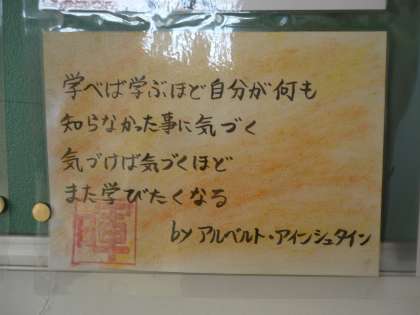 学べば学ぶほど自分が何も
知らなかった事に気づく
気づけば気づくほど
また学びたくなる
by アルベルト・アインシュタイン